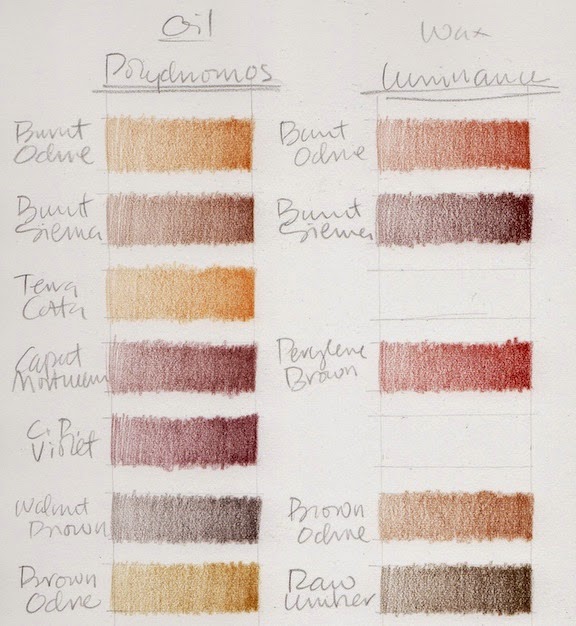 Oil
Polychromos
Burnt
Ochre
Burnt
Sienna
Terra
Cotta
Caput
Mortuum
C.P.
Violet
Walnut
Brown
Brown
Ochre
Wax
Luminance
Burnt
Ochre
Burnt
Sienna
Perylene
Brown
Brown
Ochre
Raw
Umber